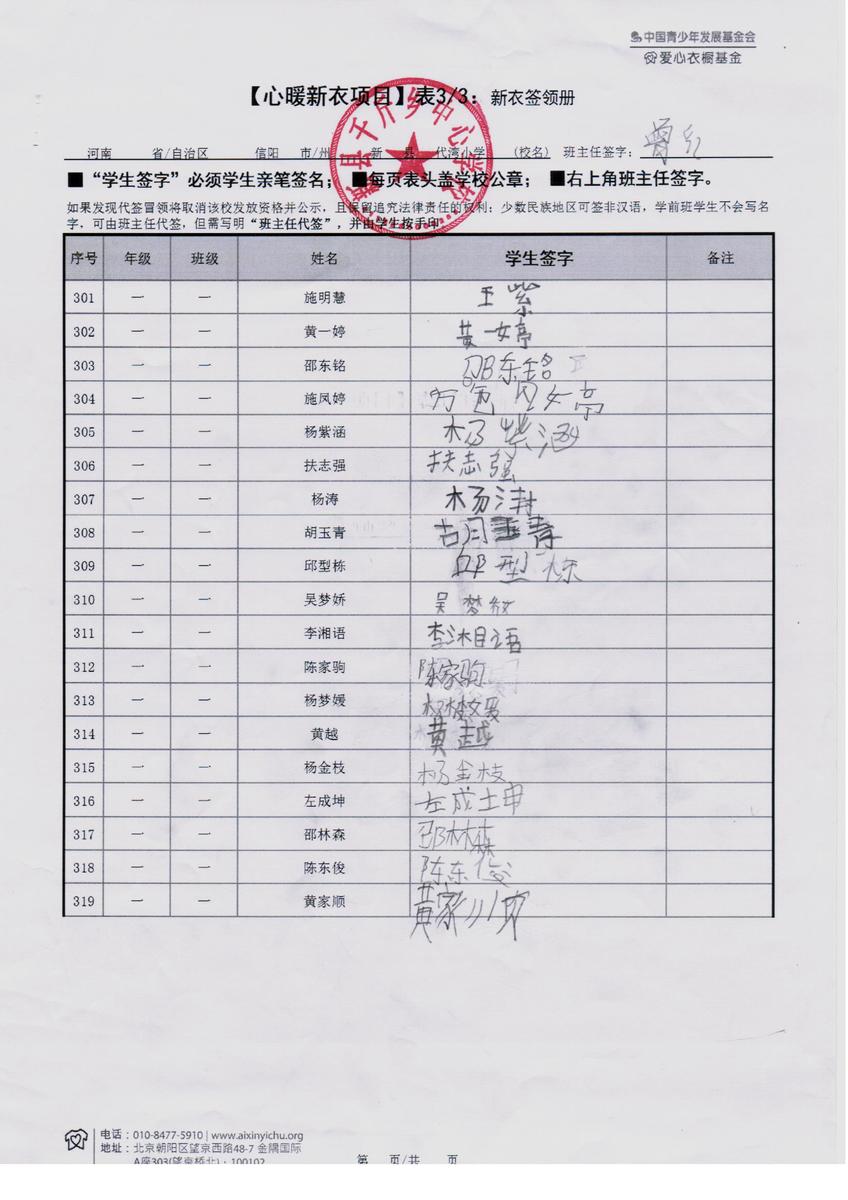 中国青少年发展基金会
爱心衣橱基金
【心暖新衣项目】表3/3：新衣签领册
河南 省/自治区 信阳 市/州 新 县 代湾小学 (校名) 班主任签字：
■“学生签字”必须学生亲笔签名；■每页表头盖学校公章；■右上角班主任签字。
如果发现代签冒领将取消该校发放资格并公示，且保留追究法律责任的权利；少数民族地区可签非汉语，学前班学生不会写名
字，可由班主任代签，但需写明“班主任代签”，并由学生按手印
新县千斤乡中心学校
序号 年级 班级 姓名 学生签字 备注
301 一 一 施明慧 王紫
302 一 一 黄一婷 黄一婷
303 一 一 邵东铭 邵东铭
304 一 一 施凤婷
305 一 一 杨紫涵 杨紫涵
306 一 一 扶志强 扶志强
307 一 一 杨涛 杨涛
308 一 一 胡玉青 胡玉青
309 一 一 邱型栋 邱型栋
310 一 一 吴梦娇 吴梦
311 一 一 李湘语 李湘语
312 一 一 陈家驹 陈家驹
313 一 一 杨梦媛 杨梦媛
314 一 一 黄越 黄越
315 一 一 杨金枝 杨金枝
316 一 一 左成坤 左成坤
317 一 一 邵林森 邵林森
318 一 一 陈东俊 陈东俊
319 一 一 黄家顺 黄家顺
电话：010-8477-5910 | www.aixinyichu.org
地址：北京朝阳区望京西路48-7 金隅国际
A座303(望京桥北)，100102
第 页/共 页